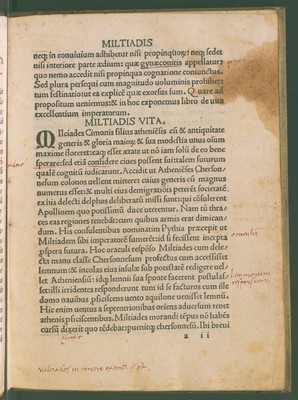 MILTIADIS
neqȝ in conuiuium adhibetur nisi propinquoȝ: neqȝ sedet
nisi interiore parte ædium: quæ gynæconitis appellatur
quo nemo accedit nisi propinqua cognatione coniunctus.
Sed plura persequi cum magnitudo uoluminis prohibet:
tum festinatio ut ea explicē quæ exorsus sum. Quare ad
propositum ueniemus: & in hoc exponemus libro de uita
excellentium imperatorum.
MILTIADIS VITA.
MIlciades Cimonis filius atheniēsis cū & antiquitate
generis & gloria maioȝ: & sua modestia unus oīum
maxime floreret: eaqȝ esset ætate ut nō iam solū de eo bene
sperare: sed etiā considere ciues possent sui: talem futurum
qualē cogniū iudicarunt. Accidit ut Atheniēses Cherson
nesum colonos uellent mittere: cuius generis cū magnus
numerus esset: & multi eius demigrationis peterēt societatē.
ex his delecti delphos deliberatū missi sunt: qui cōsulerent
Apollinem quo potissimū duce uterentur. Nam tū thra
ces eas regiones tenebāt: cum quibus armis erat dimican
dum. His consulentibus nominatim Pythia præcepit ut
Miltiadem sibi imperatorē sumerēt: id si fecissent incepta
prospera futura. Hoc oraculi respōso Miltiades cum dele
cta manu classe Chersonnesum profectus cum accessisset
lemnum: & incolas eius insulæ sub potestatē redigere uel
let Atheniensiū: idqȝ lemnii sua sponte facerent postulas
set: illi irridentes responderunt tum id se facturos cum ille
domo nauibus proficiscens uento aquilone uenisset lemnū.
Hic enim uentus a septentrionibus oriens aduersum tenet
athenis proficiscentibus. Miltiades morandi tēpus nō habēs
cursū direxit quo tēdebat: peruenitqȝ chersonnesū. Ibi breui
a ii